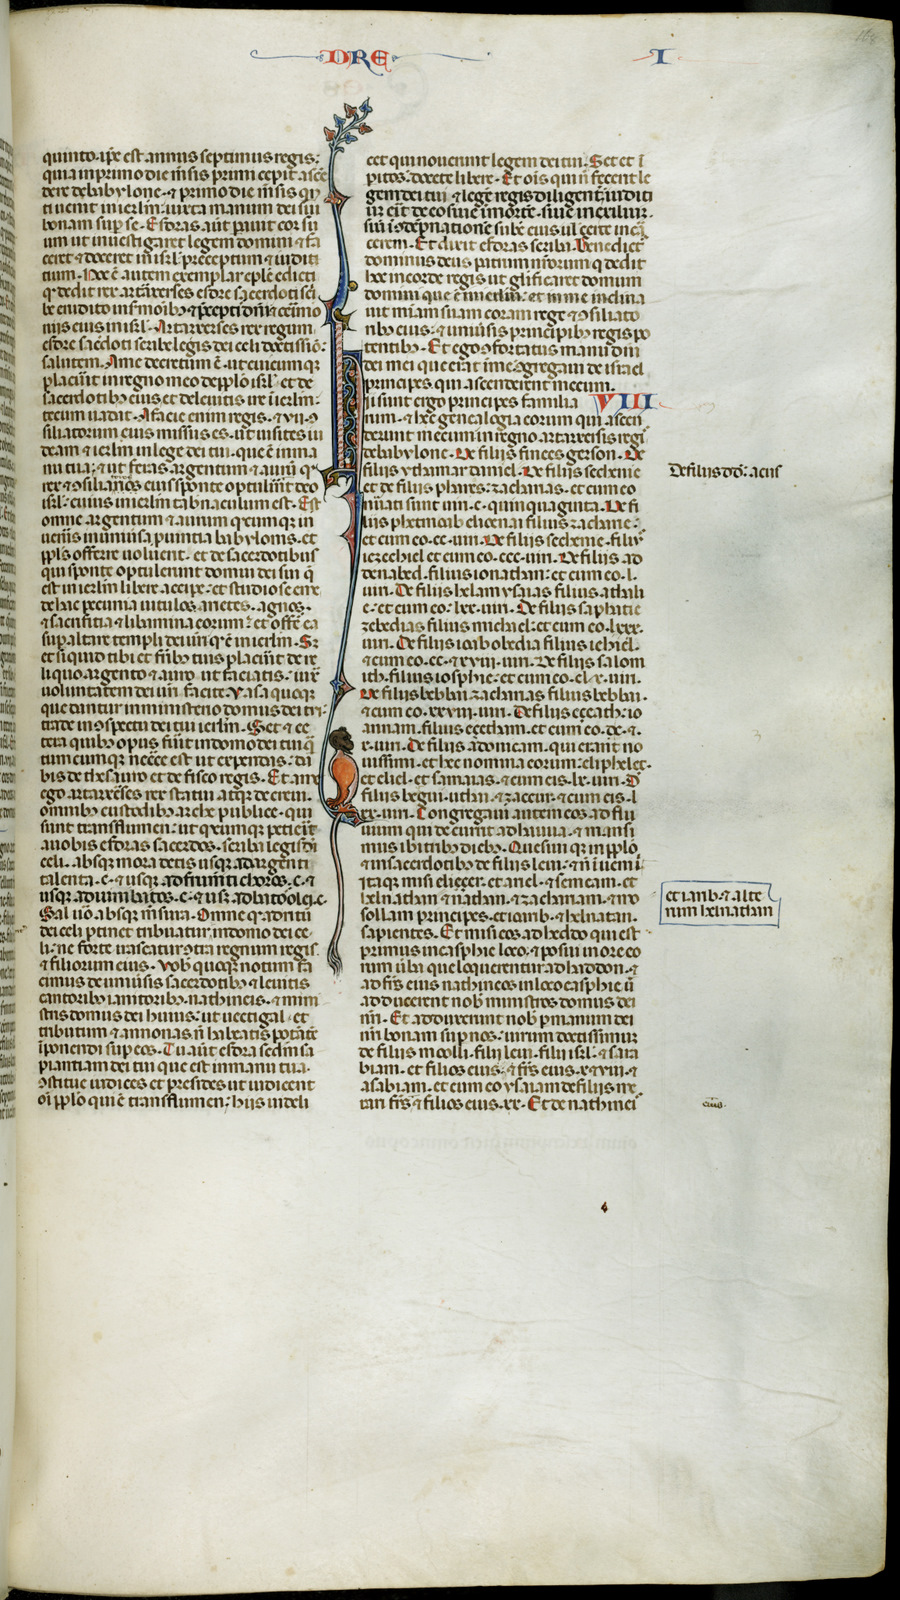 DRE
I
quinto. ipe est annus septimus regis:
quia in primo die mensis primi cepit asce
dere de babylone. & primo die mensis qui
ti uenit in ierlm. iuxta manum dei sui
bonam sup se. Esdras aut parauit cor su
um ut inuestigaret legem domini & fa
ceret & doceret in isrl preceptum & iuditi
tium. Hoc e autem exemplar eple edicti
qd dedit rex artaxerses esdre sacerdoti sci
be erudito in smoibz & preceptis dni & cerimo
niis eius in isrl. Artaxerses rex regum
esdre sacdoti scribe legis dei celi doctissio:
salutem. A me decretum e. ut cuicumq
placuit in regno meo de pplo isrl. et de
sacerdotibz eius et de leuitis ire in ierlm:
tecum uadat. A facie enim regis. & vii. 9
siliatorum eius missus es. ut uisites iu
deam & ierlm in lege dei tui. que e in ma
nu tua: & ut feras argentum & aurum qd
rex & 9siliarios eius sponte optulerunt deo
isrl. cuius in ierlm tabnaculum est. Et
omne argentum & aurum qcumq in
ueneris in uniuersa puintia babylonis. et
ppls offerre uoluerit. et de sacerdotibus
qui sponte optulerunt domui dei sui q
est in ierlm libere accipe. et studiose eme
de hac pecunia uitulos arietes. agnos.
& sacrifitia & libamina eorum: et offer ea
sup altare templi dei uri qd e in ierlm. Sz
et siquid tibi et fribz tuis placuerit de re
liquo argento & auro. ut faciatis: iux
uoluntatem dei uri facite. Vasa quoq
que dantur in ministerio domus dei tui:
trade in 9spectu dei tui ierlm. Set & ce
tera quibz opus fuerit in domo dei tui q
tumcumq necce est ut expendas: da
bis de thesauro et de fisco regis. Et a me
ego artaxerses rex statui atq decreui.
omnibz custodibz arche publice. qui
sunt transflumen: ut qcumq petierit
a uobis esdras sacerdos. scriba legis di
celi. absq mora detis usq ad argenti
talenta. c. & usq ad frumti choros. c. &
usq ad uini batos. c. & usq ad batos olei. c.
Sal uo absq msura. Omne qd ad ritu
dei celi ptinet tribuatur in domo dei ce
li: ne forte irascatur 9tra regnum regis
& filiorum eius. Vob quoq notum fa
cimus de uniusis sacerdotibz & leuitis
cantoribz ianitoribz. nathineis. & mini
stris domus dei huius: ut uectigal. et
tributum & annonas n habeatis potate
iponendi sup eos. Tu aut esdra scdm sa
pientiam dei tui que est in manu tua.
9stitue iudices et presides ut iudicent
oi pplo qui e transflumen: hiis indeli
cet qui nouerunt legem dei tui. Set et i
pitos docete libere. Et ois qui n fecerit le
gem dei tui & lege regis diligent. iuditi
um erit de eo siue in morte. siue in exilium.
siue i 9depnatione sube eius ul certe in car
cerem. Et dixit esdras scriba. Benedict
dominus deus patrum nrorum q dedit
hoc in corde regis ut glificaret domum
domini que e in ierlm: et in me inclina
uit miam suam coram rege & 9siliato
ribz eius. & uniusis principibz regis po
tentibz. Et ego 9fortatus manu dni
dei mei que erat in me 9gregaui de israel
principes qui ascenderent mecum.
VIII
ii sunt ergo principes familia
rum. & hec genealogia eorum qui ascen
derunt mecum in regno artarxersis regi
de babylone. De filiis finees gerson. De
filiis ythamar daniel. De filiis sechenie
et de filiis phares: zacharias. et cum eo
numati sunt uiri. c. quinquaginta. De fi
liis phetmoab elioenai filius zacharie:
et cum eo. cc. uiri. De filiis sechenie. filius
iezechiel et cum eo. ccc. uiri. De filiis ad
den abed. filius ionathan: et cum eo. l.
uiri. De filiis helam ysaias filius athali
e: et cum eo. lxx. uiri. De filiis saphatie
zebedias filius michael: et cum eo. lxxx.
uiri. De filiis ioab obedia filius iehiel.
& cum eo. cc. & xviii. uiri. De filiis salom
ith. filius iosphie: et cum eo. cl. x. uiri.
De filiis bebbai. zacharias filius bebbai.
& cum eo. xxviii. uiri. De filiis ezeath: io
annam. filius ezethan. et cum eo. c. &
x. uiri. De filiis adonicam. qui erant no
uissimi. et hec nomina eorum: eliphelet.
et eliel. et samaias. & cum eis. lx. uiri. D
filiis begui. uthai. & zaccur. & cum eis. l
xx. uiri. Congregaui autem eos ad flu
uium qui decurrit ad hauua. & mansi
mus ibi tribz diebz. Quesiui q in pplo
& in sacerdotibz de filiis leui. & n iueni i.
itaq misi eliezer. et ariel. & semeam. et
helnathan & nathan. & zachariam. & mo
sollam principes. et ioarib. & helnatan.
sapientes. Et misi eos ad heddo qui est
primus in casphie loco. & posui in ore eo
rum uba que loquerentur ad haddon. &
ad fres eius nathineos in loco casphie ut
adducerent nob ministros domus dei
nri. Et adduxerunt nob p manum dei
nri bonam sup nos: uirum doctissimum
de filiis moolli. filii leui. filii isrl. & sara
biam. et filios eius. & fres eius. xviii. &
asabiam. et cum eo ysaiam de filiis me
rari fres & filios eius. xx. Et de nathinei
De filiis dd: acus
et iarib. & alte
rum helnathan
eius.